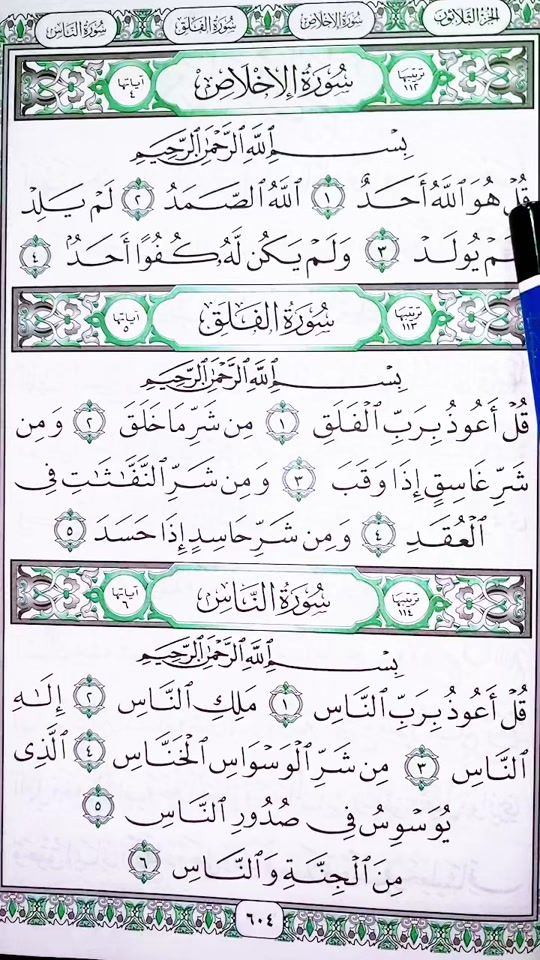 الجزء الثلاثون سورة الإخلاص سورة الفلق سورة الناس
ترتيبها ١١٢ سُورَةُ الإِخْلَاصِ آياتها ٤
بِسْمِ ٱللَّهِ ٱلرَّحْمَٰنِ ٱلرَّحِيمِ
قُلْ هُوَ ٱللَّهُ أَحَدٌ ١ ٱللَّهُ ٱلصَّمَدُ ٢ لَمْ يَلِدْ
يُولَدْ ٣ وَلَمْ يَكُن لَّهُۥ كُفُوًا أَحَدٌۢ ٤
ترتيبها ١١٣ سُورَةُ الفَلَقِ آياتها ٥
بِسْمِ ٱللَّهِ ٱلرَّحْمَٰنِ ٱلرَّحِيمِ
قُلْ أَعُوذُ بِرَبِّ ٱلْفَلَقِ ١ مِن شَرِّ مَا خَلَقَ ٢ وَمِن
شَرِّ غَاسِقٍ إِذَا وَقَبَ ٣ وَمِن شَرِّ ٱلنَّفَّٰثَٰتِ فِى
ٱلْعُقَدِ ٤ وَمِن شَرِّ حَاسِدٍ إِذَا حَسَدَ ٥
ترتيبها ١١٤ سُورَةُ النَّاسِ آياتها ٦
بِسْمِ ٱللَّهِ ٱلرَّحْمَٰنِ ٱلرَّحِيمِ
قُلْ أَعُوذُ بِرَبِّ ٱلنَّاسِ ١ مَلِكِ ٱلنَّاسِ ٢ إِلَٰهِ
ٱلنَّاسِ ٣ مِن شَرِّ ٱلْوَسْوَاسِ ٱلْخَنَّاسِ ٤ ٱلَّذِى
يُوَسْوِسُ فِى صُدُورِ ٱلنَّاسِ ٥
مِنَ ٱلْجِنَّةِ وَٱلنَّاسِ ٦
٦٠٤